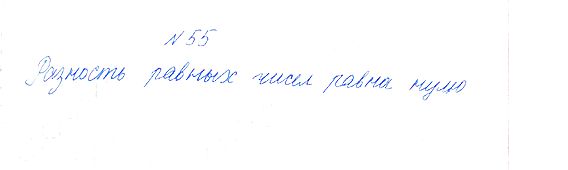 № 55
Разность равных чисел равна нулю